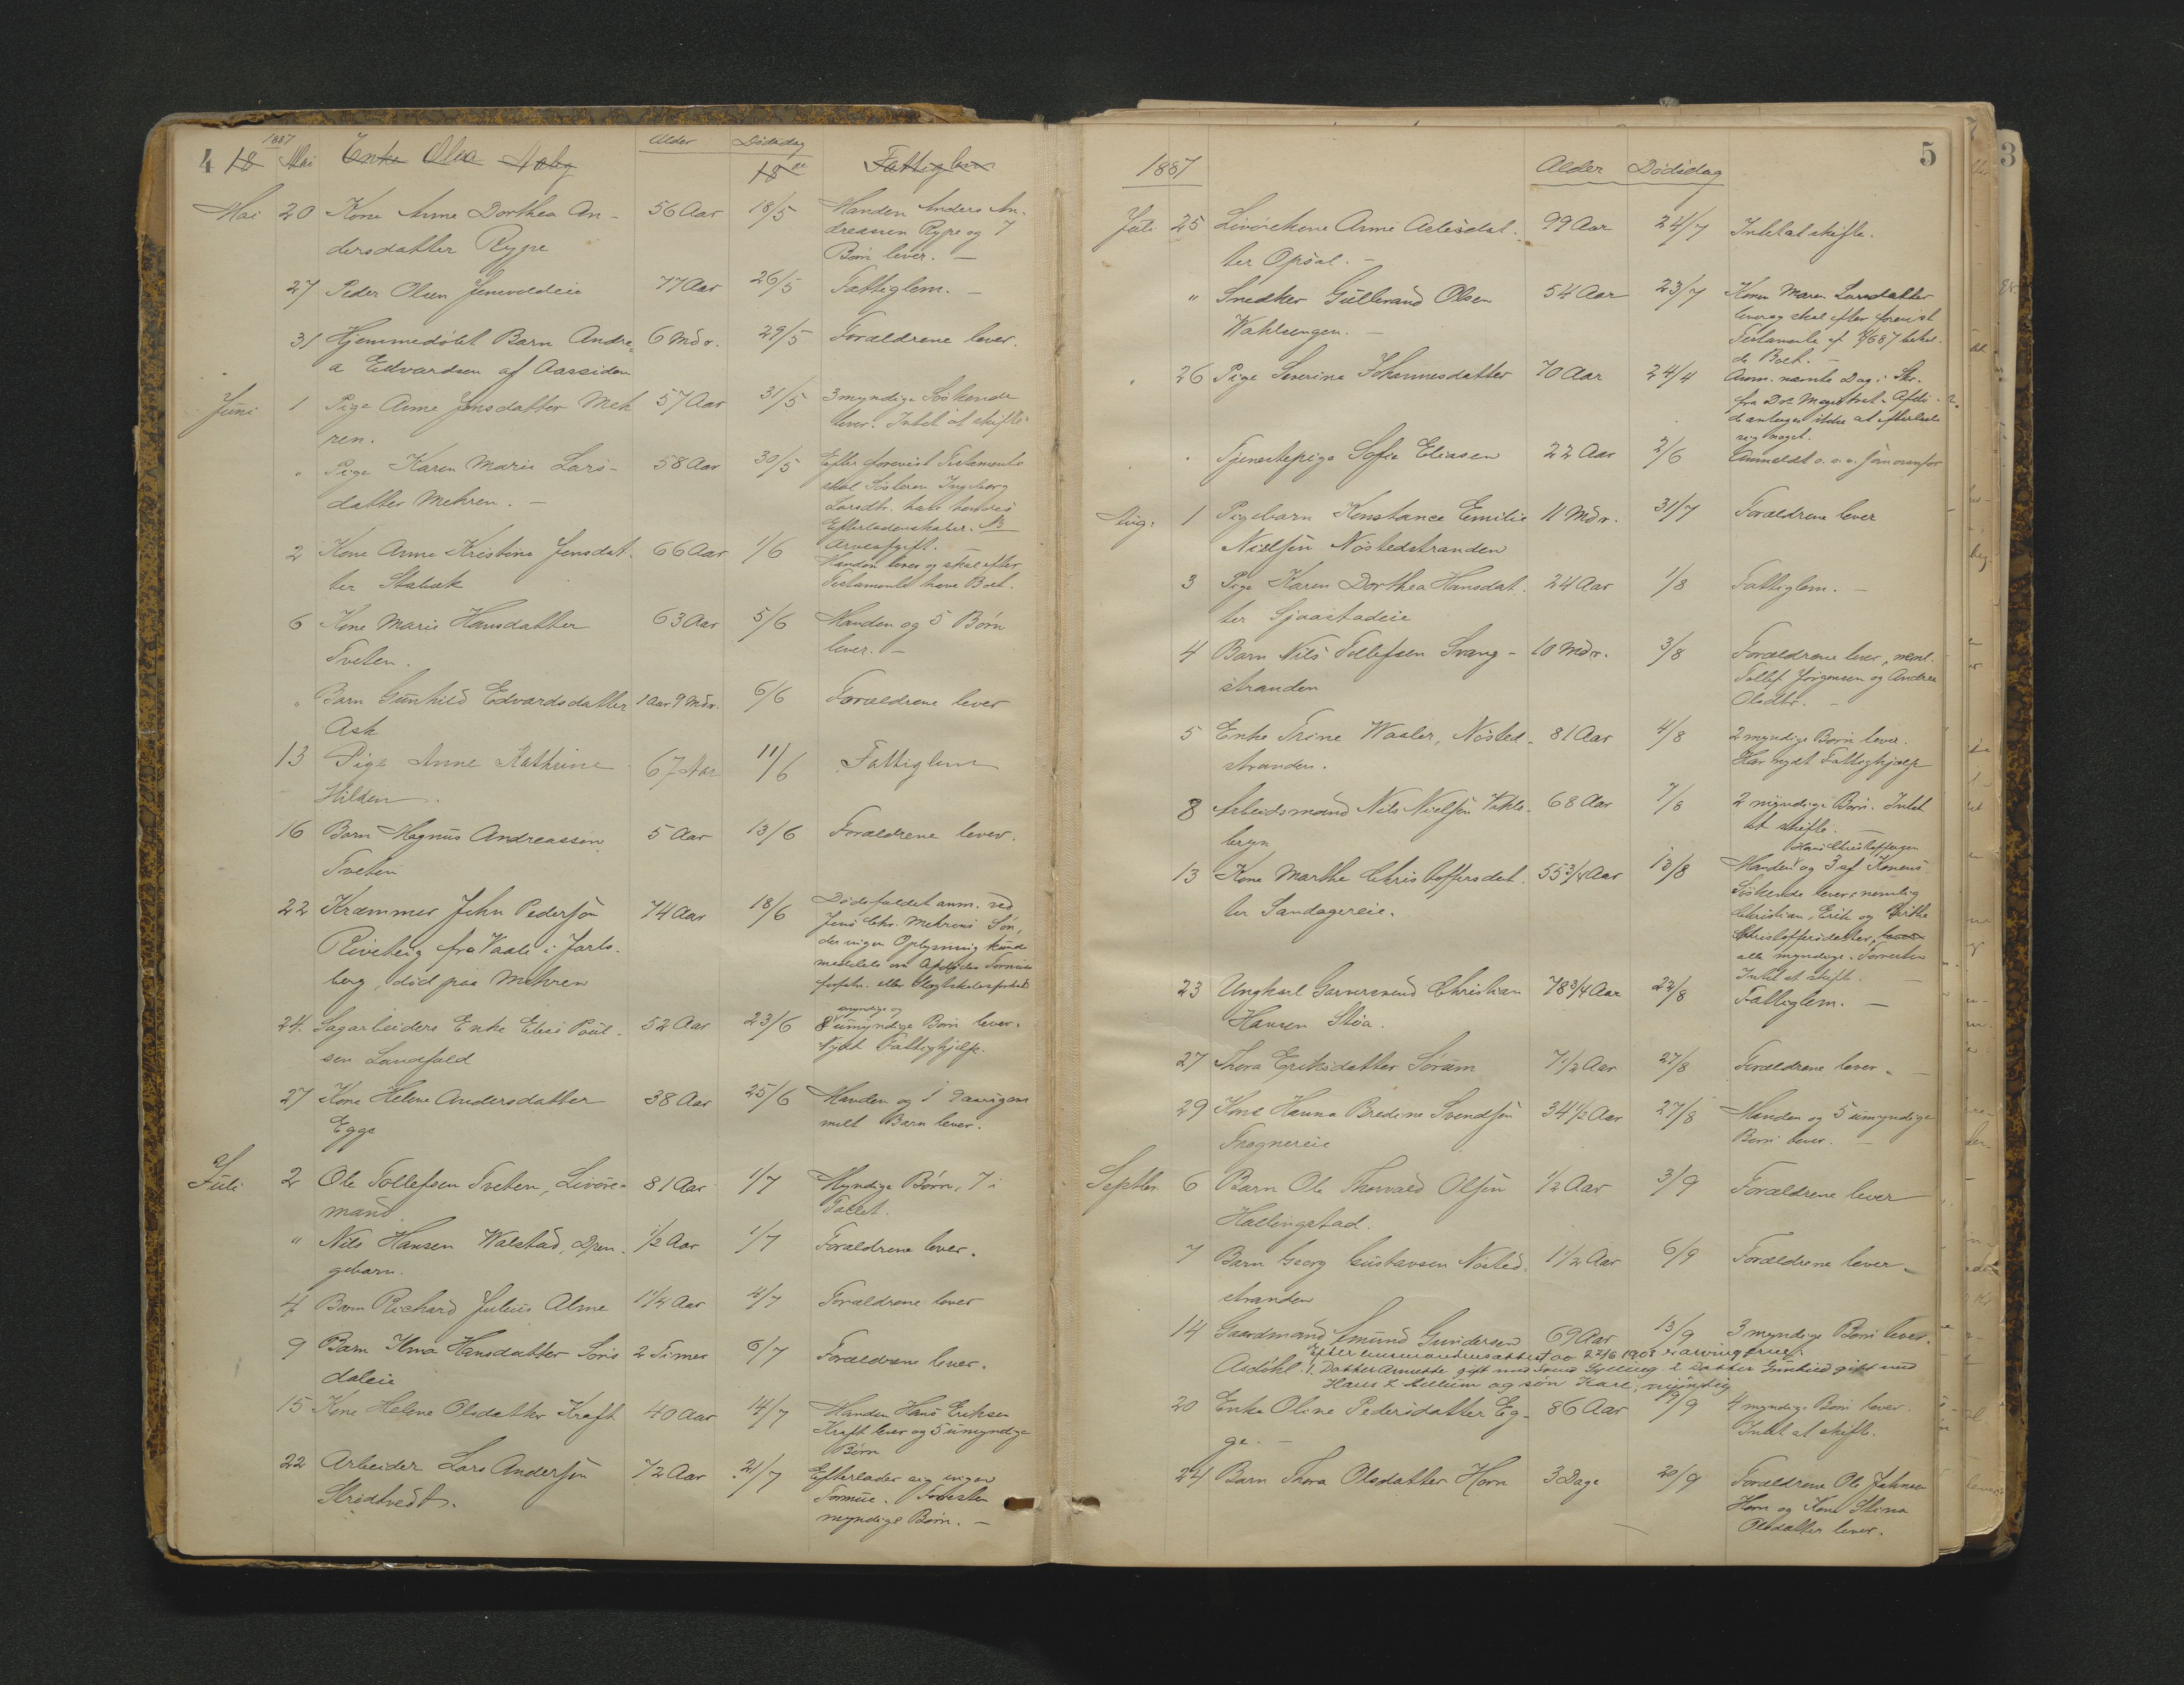 4 18 1887 Mai Enke Olea Aaby Alder Dødsdag 18de Fattiglem
Mai 20 Kone Anne Dorthea An- 56 Aar 18/5 Manden Anders An-
dersdatter Rype dreassen Rype og 7
Børn lever. —
27 Peder Olsen Jensvoldeie 77 Aar 26/5 Fattiglem. —
31 Hjemmedøbt Barn Andre- 6 Mdr. 29/5 Forældrene lever.
a Edvardsen af Aassiden
Juni 1 Pige Anne Jensdatter Meh 57 Aar 31/5 3 myndige Søskende
ren. lever. Intet at skifte
" Pige Karen Marie Lars- 58 Aar 30/5 Efter forevist Testamente
datter Mehren. — skal Søsteren Ingeborg
Larsdtr. have hendes
Efterladenskaber. NB
Arveafgift.
2 Kone Anne Kristine Jensdat- 66 Aar 1/6 Manden lever og skal efter
ter Stabæk Testamente have Boet.
6 Kone Marie Hansdatter 63 Aar 5/6 Manden og 5 Børn
Tveten. lever. —
" Barn Gunhild Edvardsdatter 1 Aar 9 Mdr. 6/6 Forældrene lever
Ask
13 Pige Anne Kathrine 67 Aar 11/6 Fattiglem
Hilden.
16 Barn Magnus Andreassen 5 Aar 13/6 Forældrene lever.
Tveten
22 Kræmmer John Pedersen 74 Aar 18/6 Dødsfaldet anm. ved
Rivehaug fra Vaale i Jarls- Jens Chr. Mehrens Søn,
berg, død paa Mehren der ingen Oplysning kunde
meddele om Afdødes Formues
forhold eller Slegtskabsforhold
24. Sagarbeiders Enke Elise Poul- 52 Aar 23/6 8 myndige og umyndige Børn lever.
sen Landfald Nydt Fattighjelp.
27 Kone Helene Andersdatter 38 Aar 25/6 Manden og 1 9aarigam
Egge melt Barn lever.
Juli 2 Ole Tollefsen Tveten, Livøre- 81 Aar 1/7 Myndige Børn, 7 i
mand Tallet.
" Nils Hansen Walstad, Dren- 1/2 Aar 1/7 Forældrene lever.
gebarn.
4 Barn Richard Julius Alme 1 1/4 Aar 2/7 Forældrene lever
9 Barn Alma Hansdatter Soris 2 Timer 6/7 Forældrene lever.
daleie
15 Kone Helene Olsdatter Kraft 40 Aar 14/7 Manden Hans Eriksen
Kraft lever og 5 umyndige
Børn
22 Arbeider Lars Andersen 72 Aar 21/7 Efterlader sig ingen
Stridtvedt. Formue. Forresten
myndige Børn. —
5
1887 Alder Dødsdag
Juli 25 Livørekone Anne Aslesdat- 99 Aar 24/7 Intet at skifte.
ter Opsal. —
" Snedker Gulbrand Olsen 54 Aar 23/7 Konen Maren Larsdatter
Wahlsengen. — lever og skal efter forevist
Testamente af behol-
de Boet. —
26 Pige Severine Johannesdatter 70 Aar 24/4 Anm. nævnte Dag i Skr.
fra Magistrat. Afdø-
de antages ikke at efterlade
sig noget.
" Tjenestepige Sofie Eliasen 22 Aar 2/6 Anmeldt o.s.v. som ovenfor
Aug. 1 Pigebarn Konstance Emilie 11 Mdr. 31/7 Forældrene lever
Nielsen Nøstedstranden
3 Pige Karen Dorthea Hansdat- 24 Aar 1/8 Fattiglem. —
ter Sjaastadeie
4 Barn Nils Tollefsen Svang- 10 Mdr. 3/8 Forældrene lever, neml.
stranden Tollef Jørgensen og Andrea
Olsdtr. —
5 Enke Trine Waaler, Nøsted- 81 Aar 4/8 2 myndige Børn lever.
stranden. Har nydt Fattighjælp
8 Arbeidsmand Nils Nielsen Vahls- 68 Aar 7/8 2 myndige Børn. Intet
bryn at skifte. —
Hans Christoffersen
13 Kone Marthe Christoffersdat- 55 3/4 Aar 13/8 Manden og 3 af Konens
ter Sandagereie. Søskende lever, nemlig
Christian, Erik og Birthe
Christoffersdatter,
alle myndige. Forresten
Intet at skifte. —
23 Ungkarl Garversvend Christian 78 3/4 Aar 22/8 Fattiglem. —
Hansen Støa.
27 Thora Eriksdatter Sørum 7 1/2 Aar 27/8 Forældrene lever. —
29 Kone Hanna Bredine Svendsen 34 1/2 Aar 27/8 Manden og 5 umyndige
Frognereie Børn lever. —
Septbr. 6 Barn Ole Thorvald Olsen 1/2 Aar 3/9 Forældrene lever
Hallingstad.
7 Barn Georg Gustavsen Nøsted- 1 1/2 Aar 6/9 Forældrene lever.
stranden
14 Gaardmand Amund Gundersen 69 Aar 13/9 3 myndige Børn lever.
Efter attest av 22/6 1908 er arvingerne:
Asdøhl. 1. Datter Annette gift med Solling 2 Datter Gunhild gift med
Hans L. Lillum og søn Karl, myndig
20 Enke Oline Pedersdatter Eg- 86 Aar 19/9 4 myndige Børn lever.
ge. — Intet at skifte.
24 Barn Thora Olsdatter Horn 3 Dage 20/9 Forældrene Ole Johnsen
Horn og Kone Stina
Olsdatter lever.